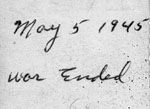 May 5 1945
War Ended